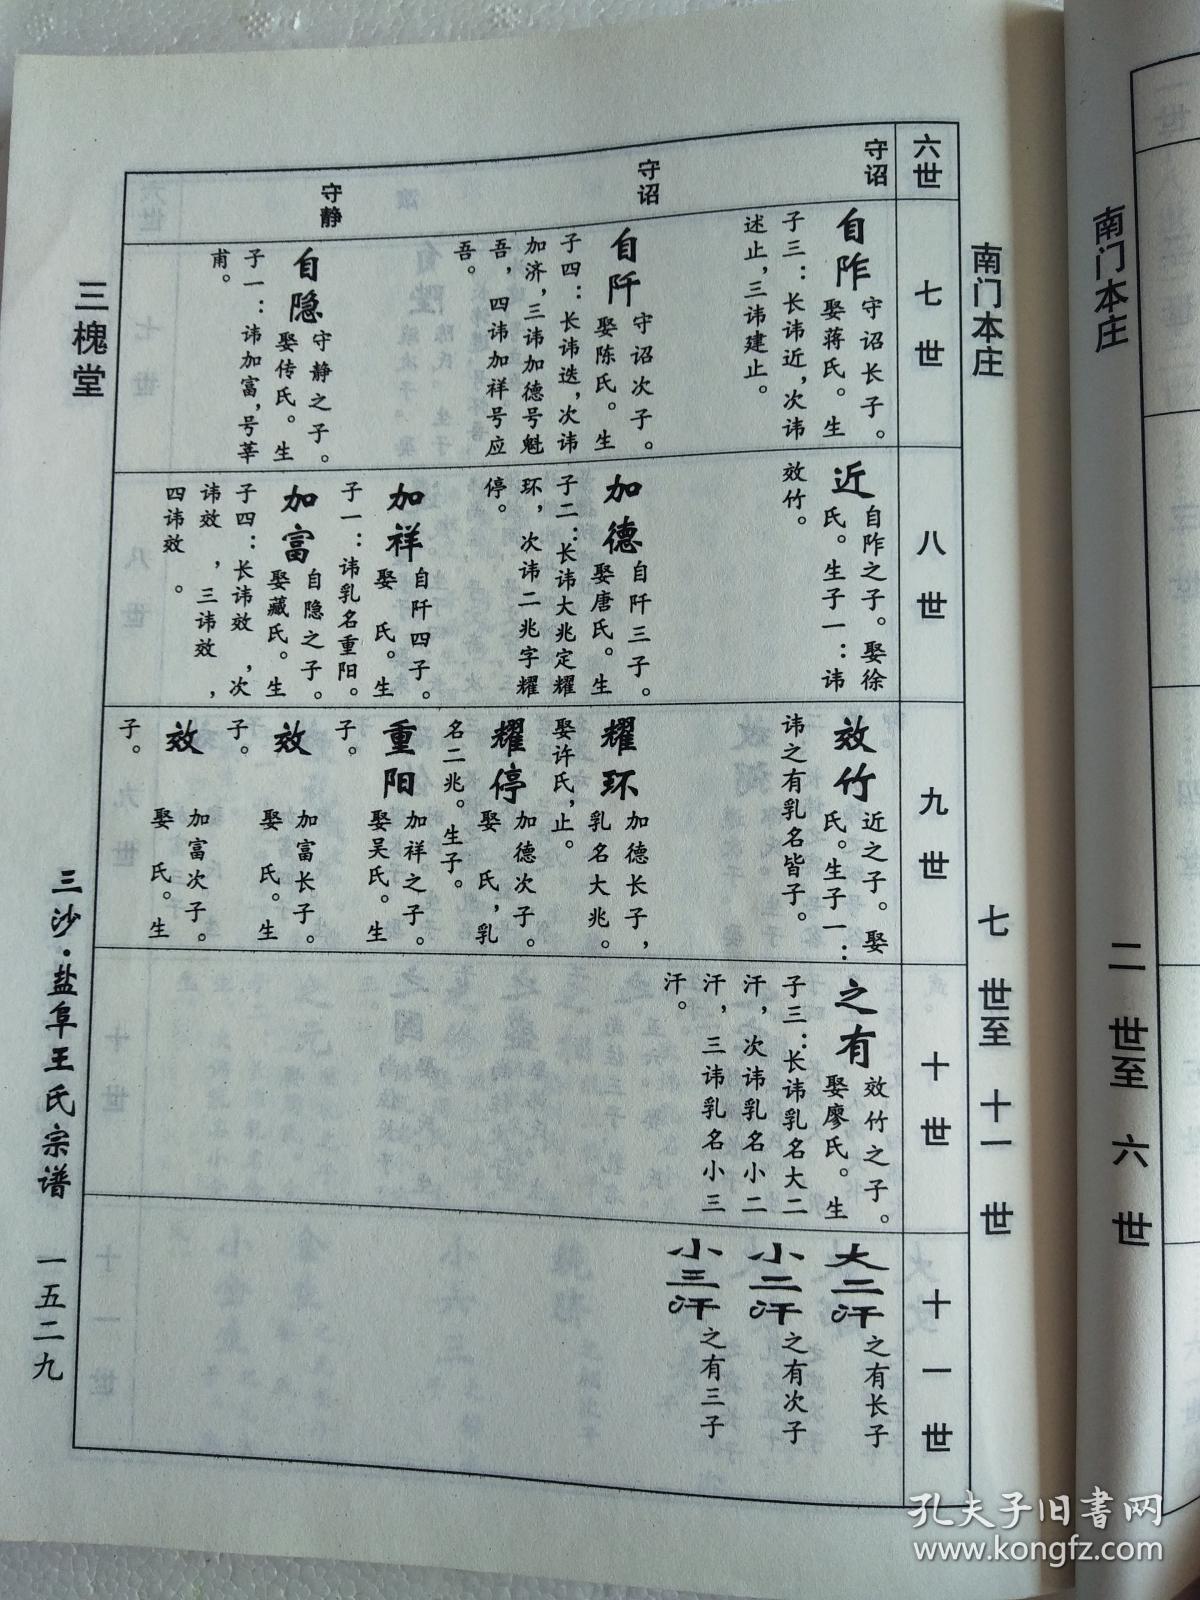 南门本庄
二世至六世
南门本庄
七世至十一世
六世
七世
八世
九世
十世
十一世
守诏
守诏
守静
自阼
守诏长子。
娶蒋氏。生
子三：长讳近，次讳
述止，三讳建止。
自阡
守诏次子。
娶陈氏。生
子四：长讳迭，次讳
加济，三讳加德号魁
吾，四讳加祥号应
吾。
自隐
守静之子。
娶传氏。生
子一：讳加富，号莘
甫。
近
自阼之子。娶徐
氏。生子一：讳
效竹。
加德
自阡三子。
娶唐氏。生
子二：长讳大兆定耀
环，次讳二兆字耀
停。
加祥
自阡四子。
娶 氏。生
子一：讳乳名重阳。
加富
自隐之子。
娶藏氏。生
子四：长讳效 ，次
讳效 ，三讳效 ，
四讳效 。
效竹
近之子。娶
氏。生子一：
讳之有乳名皆子。
耀环
加德长子，
乳名大兆。
娶许氏，止。
耀停
加德次子。
娶 氏，乳
名二兆。生子。
重阳
加祥之子。
娶吴氏。生
子。
效
加富长子。
娶 氏。生
子。
效
加富次子。
娶 氏。生
子。
之有
效竹之子。
娶廖氏。生
子三：长讳乳名大二
汗，次讳乳名小二
汗，三讳乳名小三
汗。
大二汗
之有长子
小二汗
之有次子
小三汗
之有三子
三槐堂
三沙·盐阜王氏宗谱
一五二九
孔夫子旧书网
www.kongfz.com